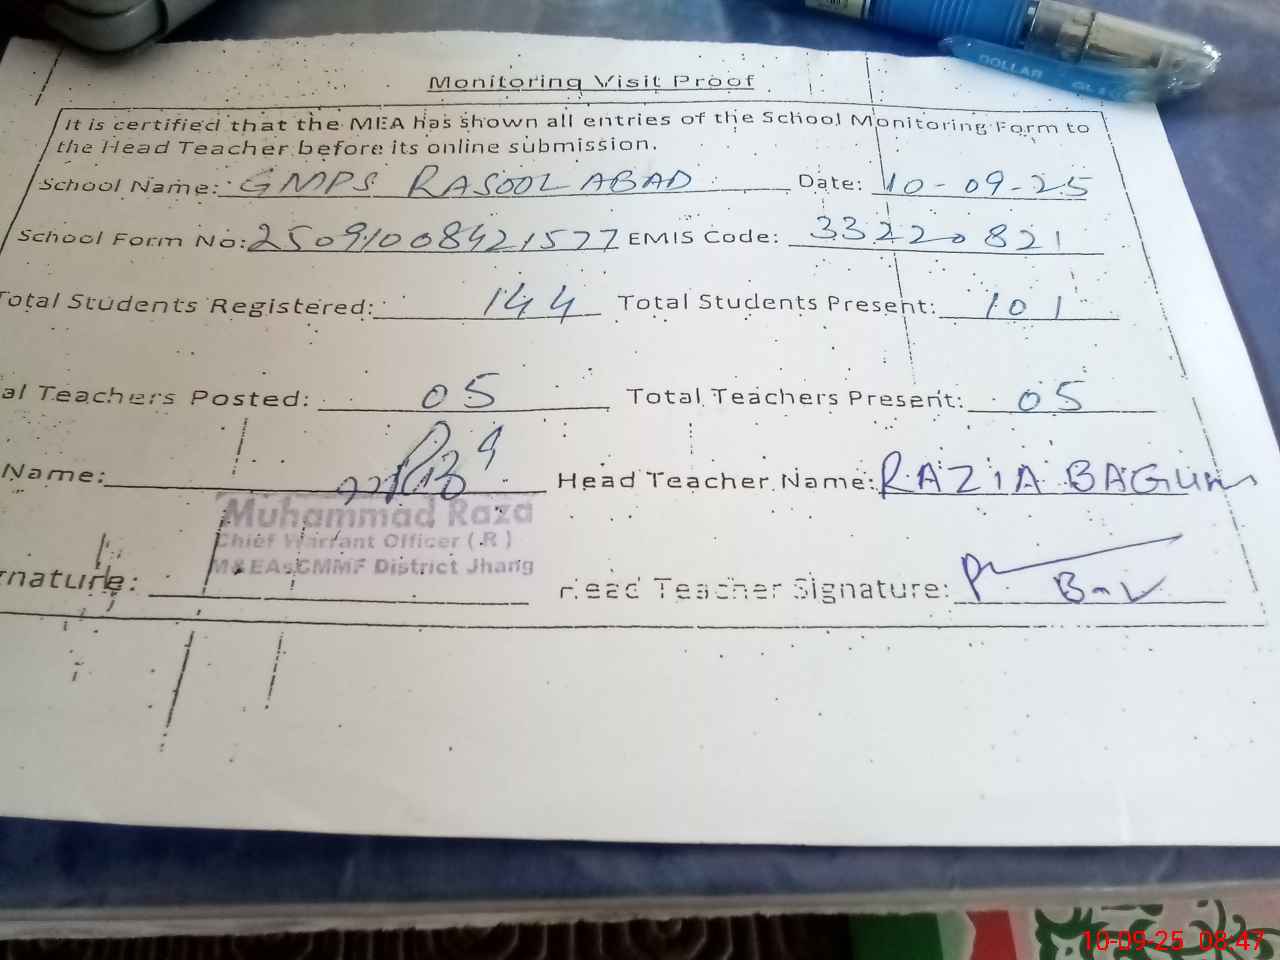 DOLLAR
Monitoring Visit Proof
It is certified that the MEA has shown all entries of the School Monitoring Form to
the Head Teacher before its online submission.
School Name: GMPS RASOOL ABAD Date: 10-09-25
School Form No: 25091008421577 EMIS Code: 33220821
Total Students Registered: 144 Total Students Present: 101
al Teachers Posted: 05 Total Teachers Present: 05
Name: Head Teacher Name: RAZIA BAGUM
Muhammad Raza
Chief Warrant Officer (R)
M&EAsCMMF District Jhang
nature: Head Teacher Signature:
10-09-25 08:47